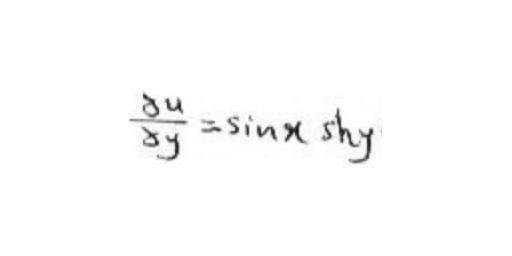 ∂u/∂y = sinx shy